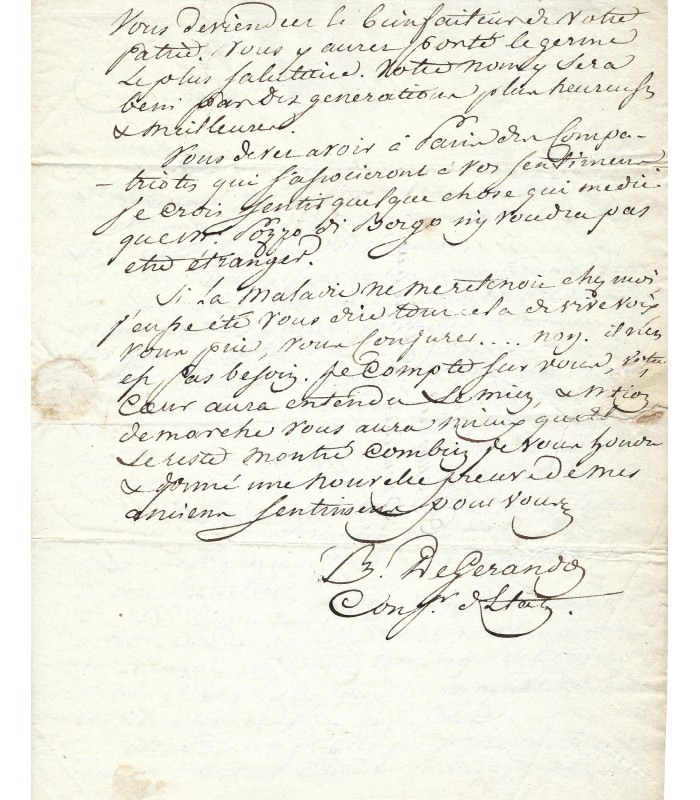 Vous deviendrez le bienfaiteur de votre
patrie. Vous y aurez porté le germe
le plus salutaire. Votre nom y sera
beni par des generations plus heureuses
& meilleures.
Vous devez avoir à Paris des Compa-
-triotes qui s'associeront à vos sentimens
Je crois sentir quelque chose qui me dit
que Mr. Pozzo di Borgo n'y voudra pas
etre étranger.
Si la maladie ne me retenoit chez moi,
j'eusse été vous dire tout cela de vive voix
vous prier, vous conjurer.... non. il n'en
est pas besoin. Je compte sur vous, votre
cœur aura entendu le mien, &
demarche vous aura mieux que
le reste montré combien je vous honore
& donné une nouvelle preuve de mes
anciens sentimens pour vous
B. DeGerando
Conser. d'Etat.